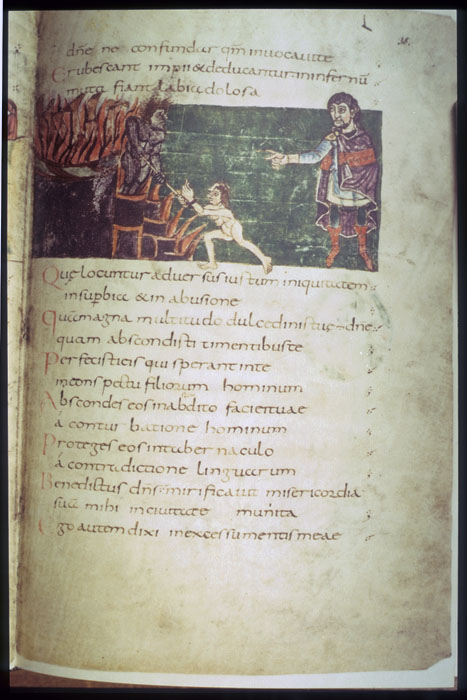 dn̄e nō confundar qm̄ inuocauite
Erubescant impii & deducantur ininfernū
muta fiant labia dolosa
Quę locuntur aduersus iustum iniquitatem
insuperbia & in abusione
Quam magna multitudo dulcedinis tuę dn̄e
quam abscondisti timentibus te
Perfecisti eis qui sperant in te
inconspectu filiorum hominum
Abscondes eos inabdito faciei tuae
a conturbatione hominum
Proteges eos intabernaculo
á contradictione linguarum
Benedictus dn̄s mirificauit misericordia
suā mihi inciuitate munita
Ego autem dixi inexcessu mentis meae